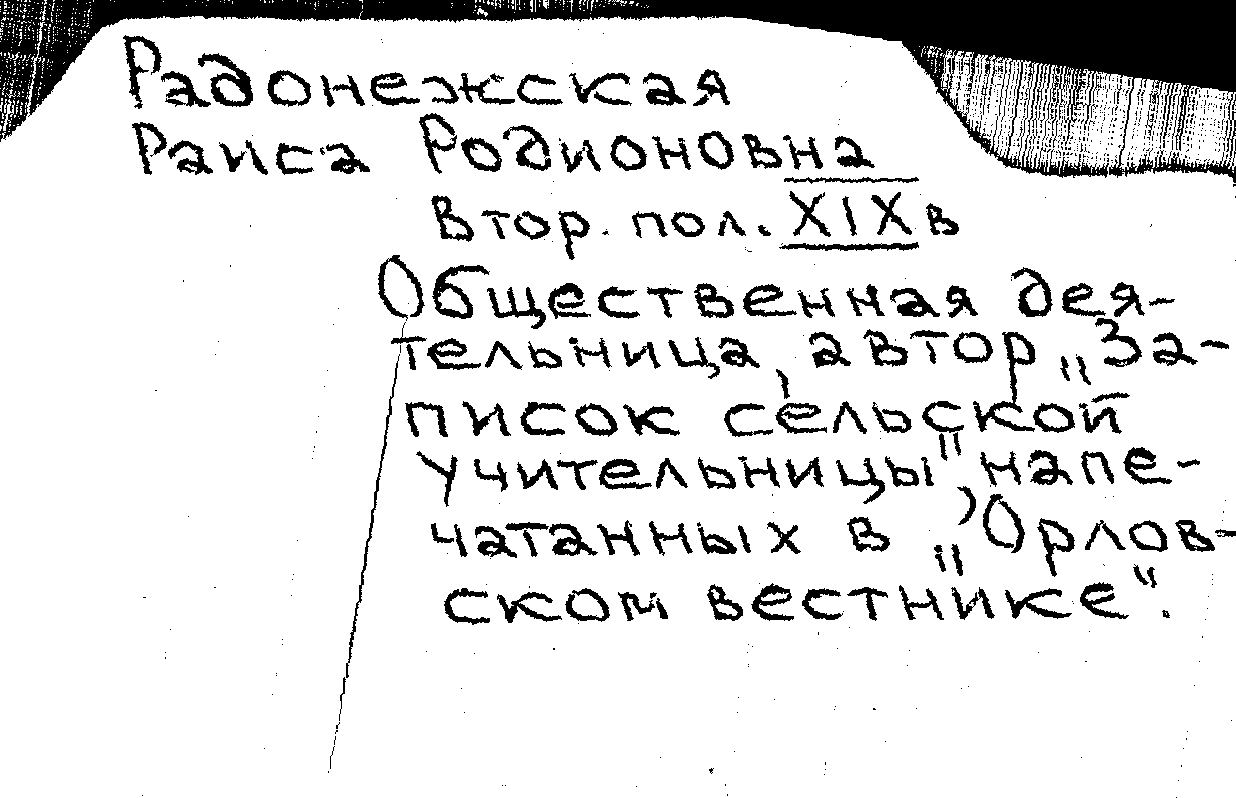 Радонежская
Раиса Родионовна
Втор. пол. XIX в
Общественная дея-
тельница, автор „За-
писок сельской
учительницы", напе-
чатанных в „Орлов-
ском вестнике".